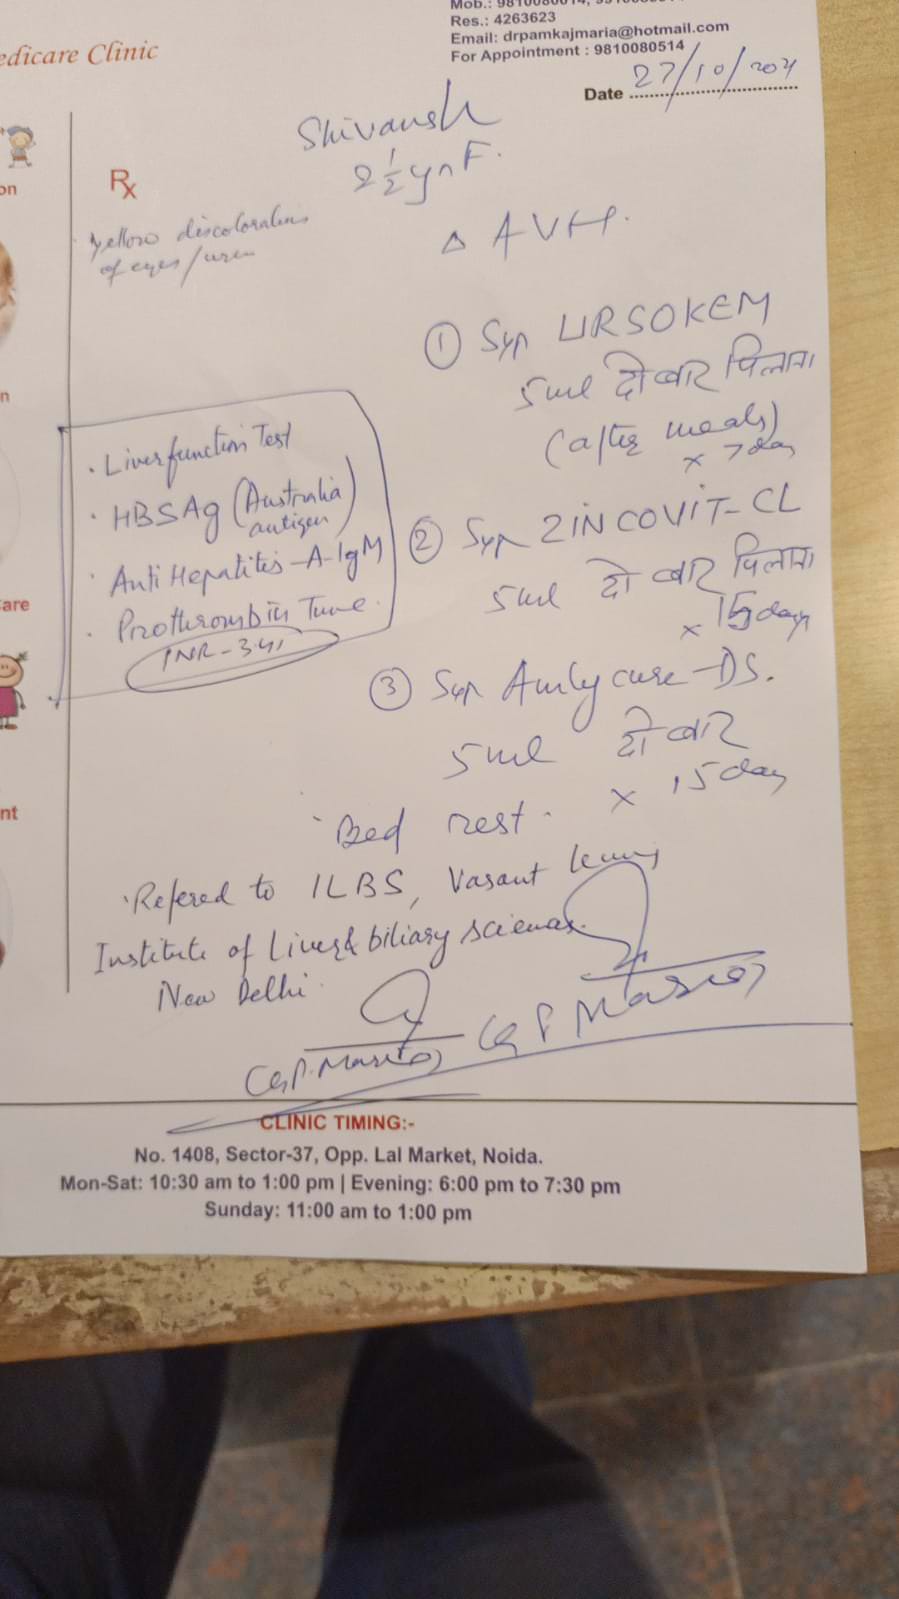 edicare Clinic
Mob.: 9810080014,
Res.: 4263623
Email: drpamkajmaria@hotmail.com
For Appointment : 9810080514
Date 27/10/2021
on
n
are
nt
Rx
Shivansh
2 1/2 yr F.
yellow discoloration
of eyes/urine
Δ AVH.
① Syp URSOKEM
5ml दो बार पिलाना
(after meals)
x 7 day
· Liver function Test
· HBSAg (Australia antigen)
· Anti Hepatitis-A-IgM
· Prothrombin Time.
INR-3.41
② Syp ZINCOVIT-CL
5ml दो बार पिलाना
x 15 days
③ Syp Amlycure-DS.
5ml दो बार
x 15 day
· Bed rest.
· Refered to ILBS, Vasant kunj
Institute of Liver & biliary sciences.
New Delhi.
CLINIC TIMING:-
No. 1408, Sector-37, Opp. Lal Market, Noida.
Mon-Sat: 10:30 am to 1:00 pm | Evening: 6:00 pm to 7:30 pm
Sunday: 11:00 am to 1:00 pm